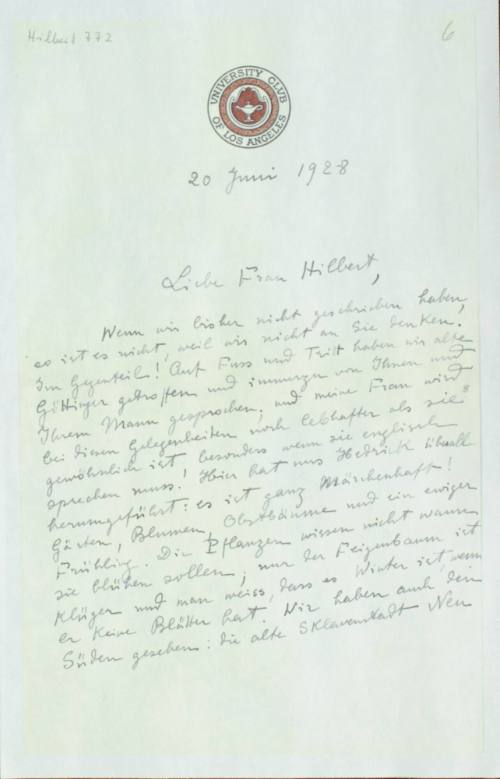 Hilbert 772
6
UNIVERSITY CLUB
OF LOS ANGELES
20 Juni 1928
Liebe Frau Hilbert,
Wenn wir bisher nicht geschrieben haben,
so ist es nicht, weil wir nicht an Sie denken.
Im Gegenteil! Auf Fuss und Tritt haben wir alte
Göttinger getroffen und immerzu von Ihnen und
Ihrem Mann gesprochen, und meine Frau wird
bei diesen Gelegenheiten noch lebhafter als sie
gewöhnlich ist, besonders wenn sie englisch
sprechen muss! Hier hat uns Hedrick überall
herumgeführt: es ist ganz Märchenhaft!
Gärten, Blumen, Obstbäume und ein ewiger
Frühling. Die Pflanzen wissen nicht wann
sie blühen sollen; nur der Feigenbaum ist
klüger und man weiss, dass es Winter ist, wenn
er keine Blätter hat. Wir haben auch den
Süden gesehen: die alte Sklavenstadt New